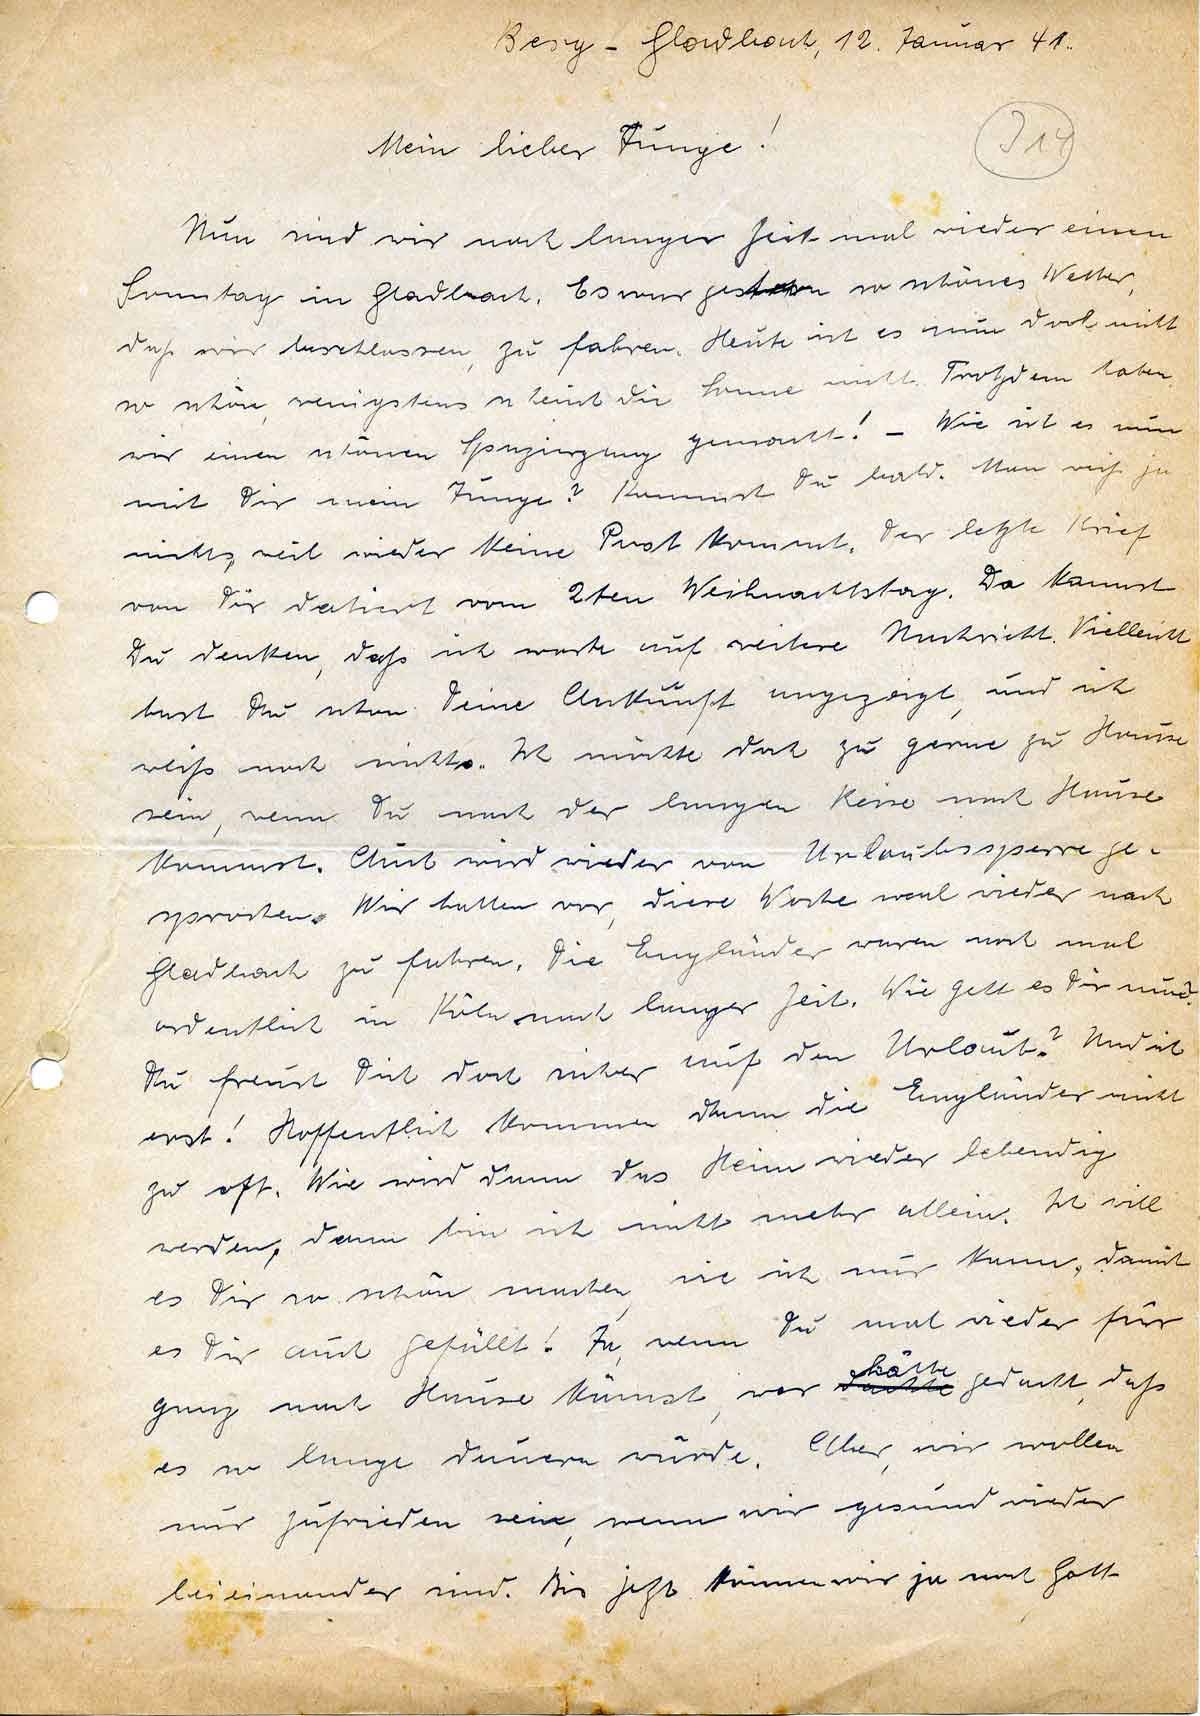 Berg-Gladbach, 12. Januar 41.
J 14
Mein lieber Junge!
Nun sind wir nach langer Zeit mal wieder einen
Sonntag in Gladbach. Es war gestern so schönes Wetter,
daß wir beschlossen, zu fahren. Heute ist es nun doch nicht
so schön, wenigstens scheint die Sonne nicht. Trotzdem haben
wir einen schönen Spaziergang gemacht! – Wie ist es nun
mit Dir mein Junge? Kommst Du bald. Man weiß ja
nichts, weil wieder keine Post kommt. Der letzte Brief
von Dir datiert vom 2ten Weihnachtstag. Da kannst
Du denken, daß ich warte auf weitere Nachricht. Vielleicht
hast Du schon Deine Ankunft angezeigt, und ich
weiß noch nichts. Ich möchte doch zu gerne zu Hause
sein, wenn Du nach der langen Reise nach Hause
kommst. Auch wird wieder von Urlaubssperre ge-
sprochen. Wir hatten vor, diese Woche mal wieder nach
Gladbach zu fahren. Die Engländer waren noch mal
ordentlich in Köln nach langer Zeit. Wie geht es Dir nun?
Du freust Dich doch sicher auf den Urlaub? Und ich
erst! Hoffentlich kommen dann die Engländer nicht
zu oft. Wie wird dann das Heim wieder lebendig
werden, dann bin ich nicht mehr allein. Ich will
es Dir so schön machen, wie ich nur kann, damit
es Dir auch gefällt! Ja, wenn Du mal wieder für
ganz nach Hause kämst, wer hätte gedacht, daß
es so lange dauern würde. Aber, wir wollen
nur zufrieden sein, wenn wir gesund wieder
beieinander sind. Bis jetzt können wir ja noch Gott